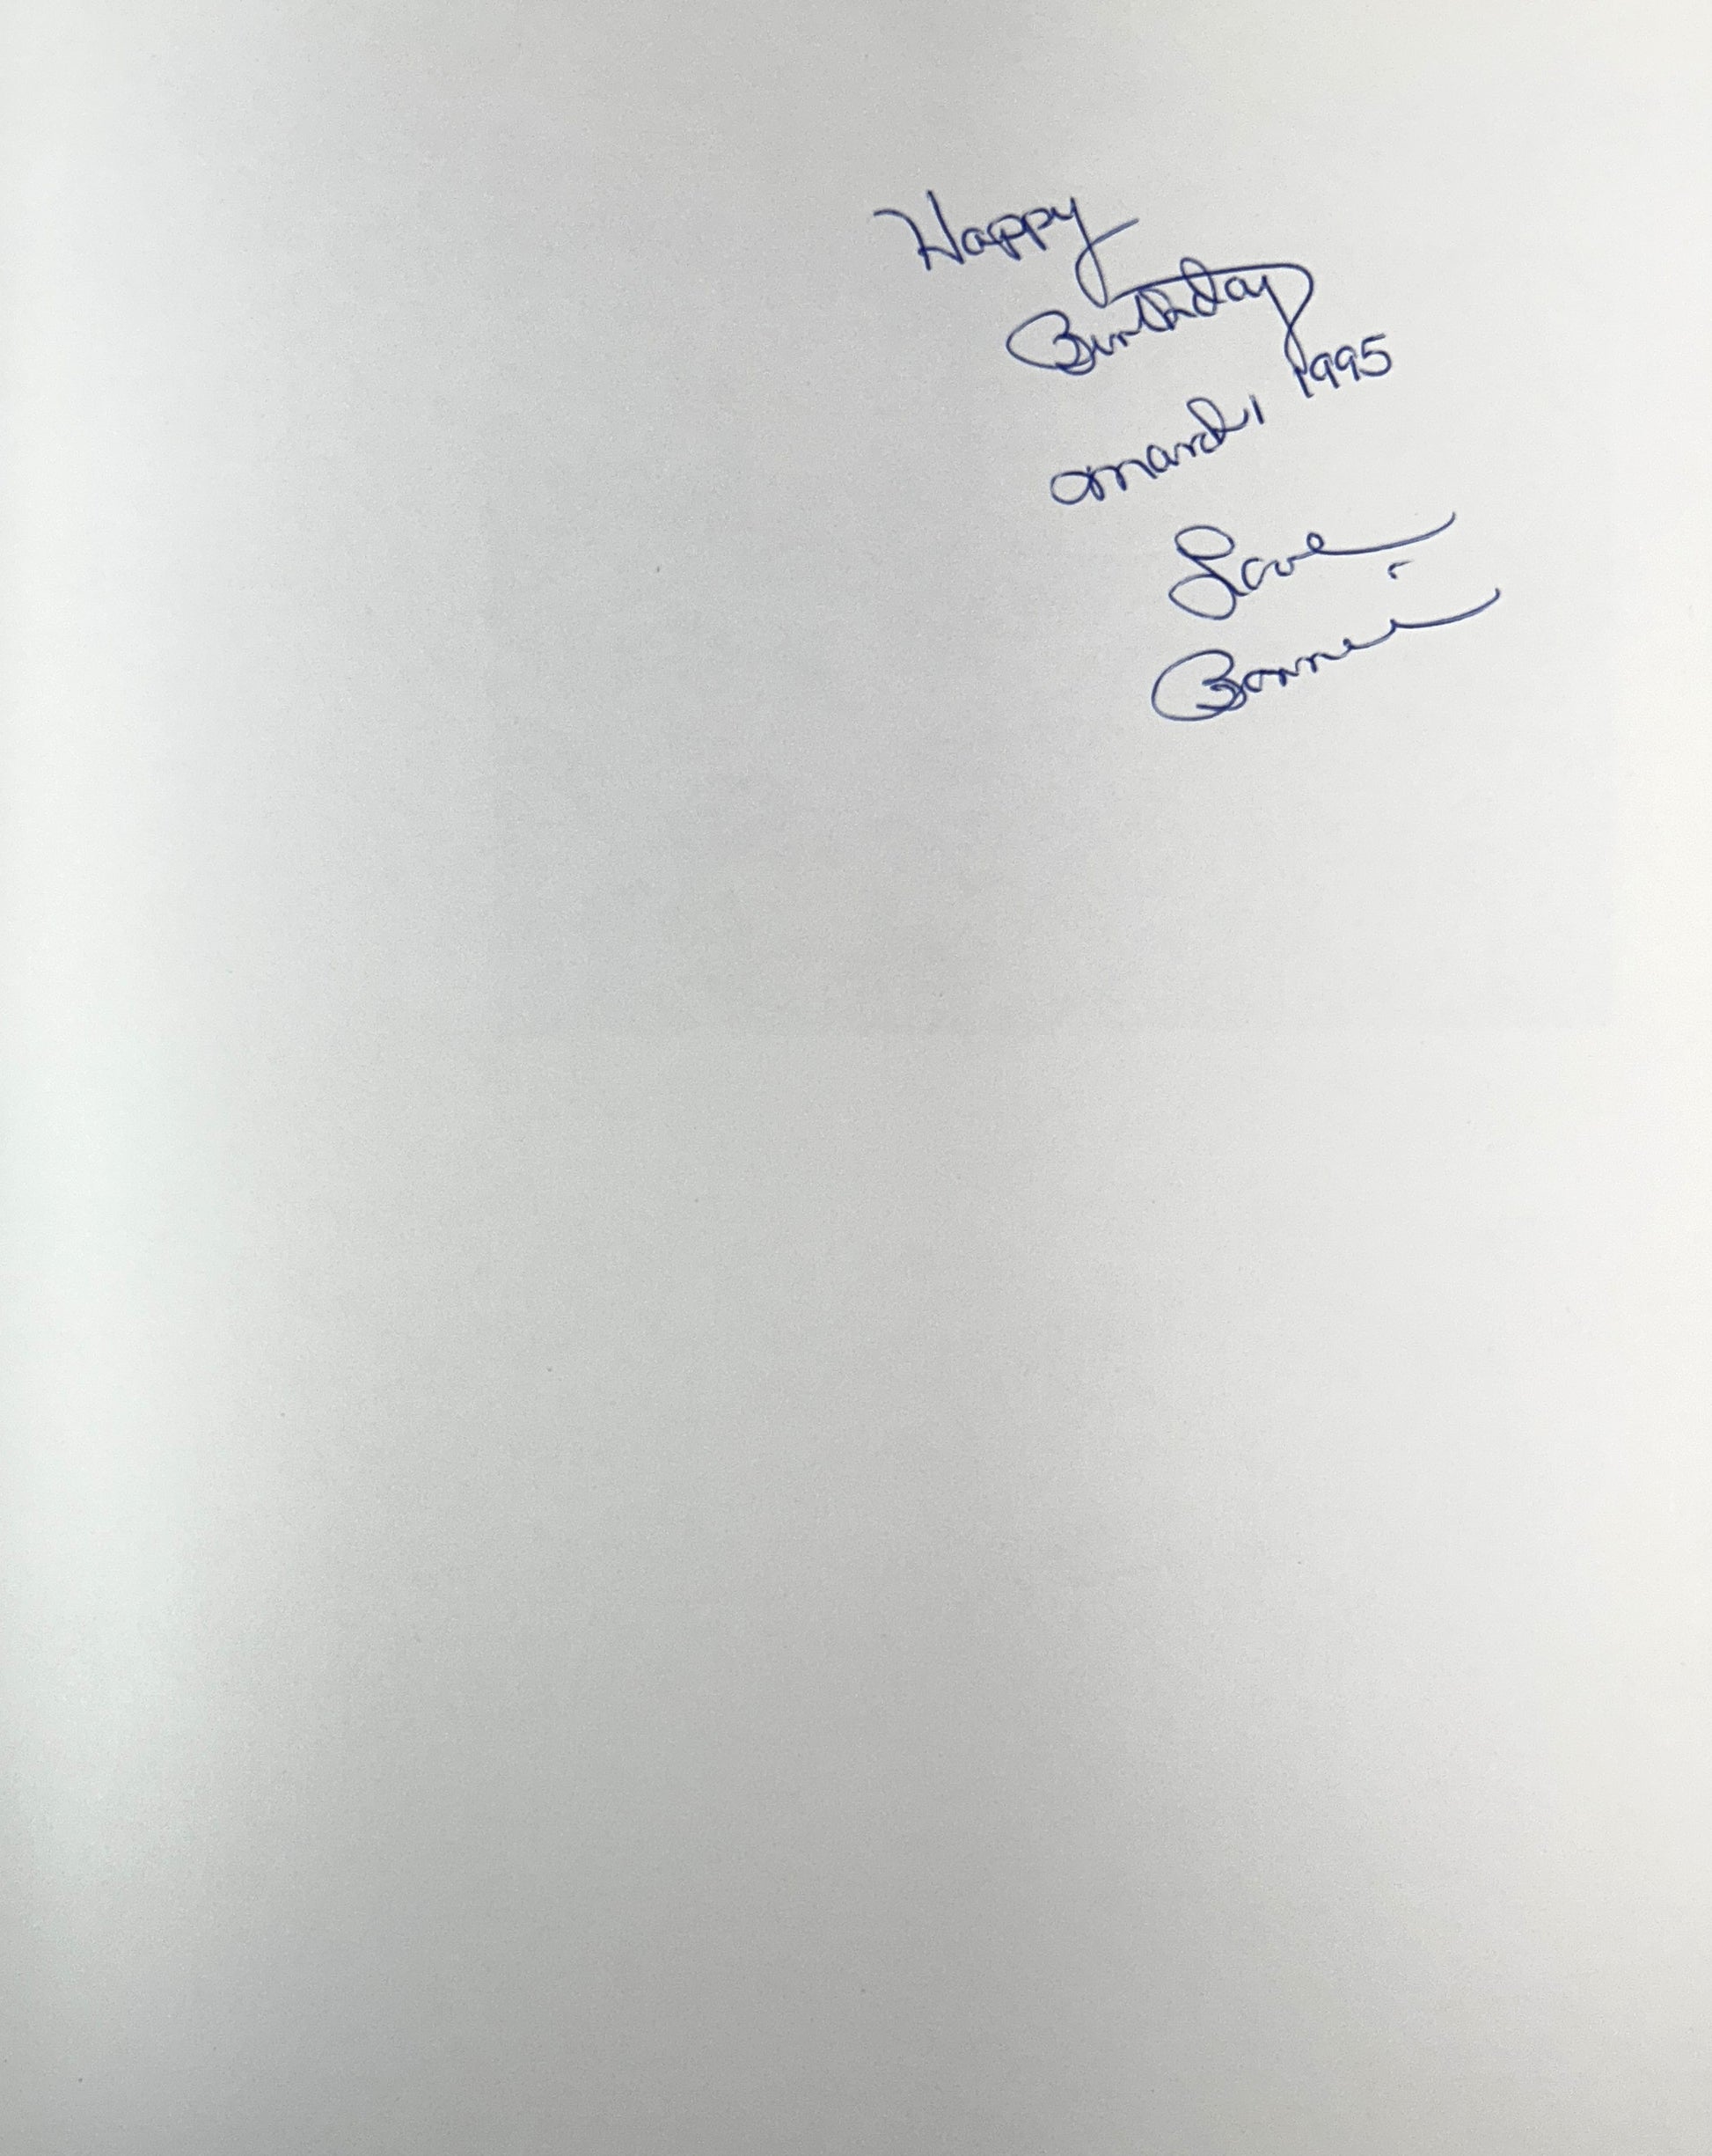 Happy
Birthday
March 1 1995
Love
Bonnie